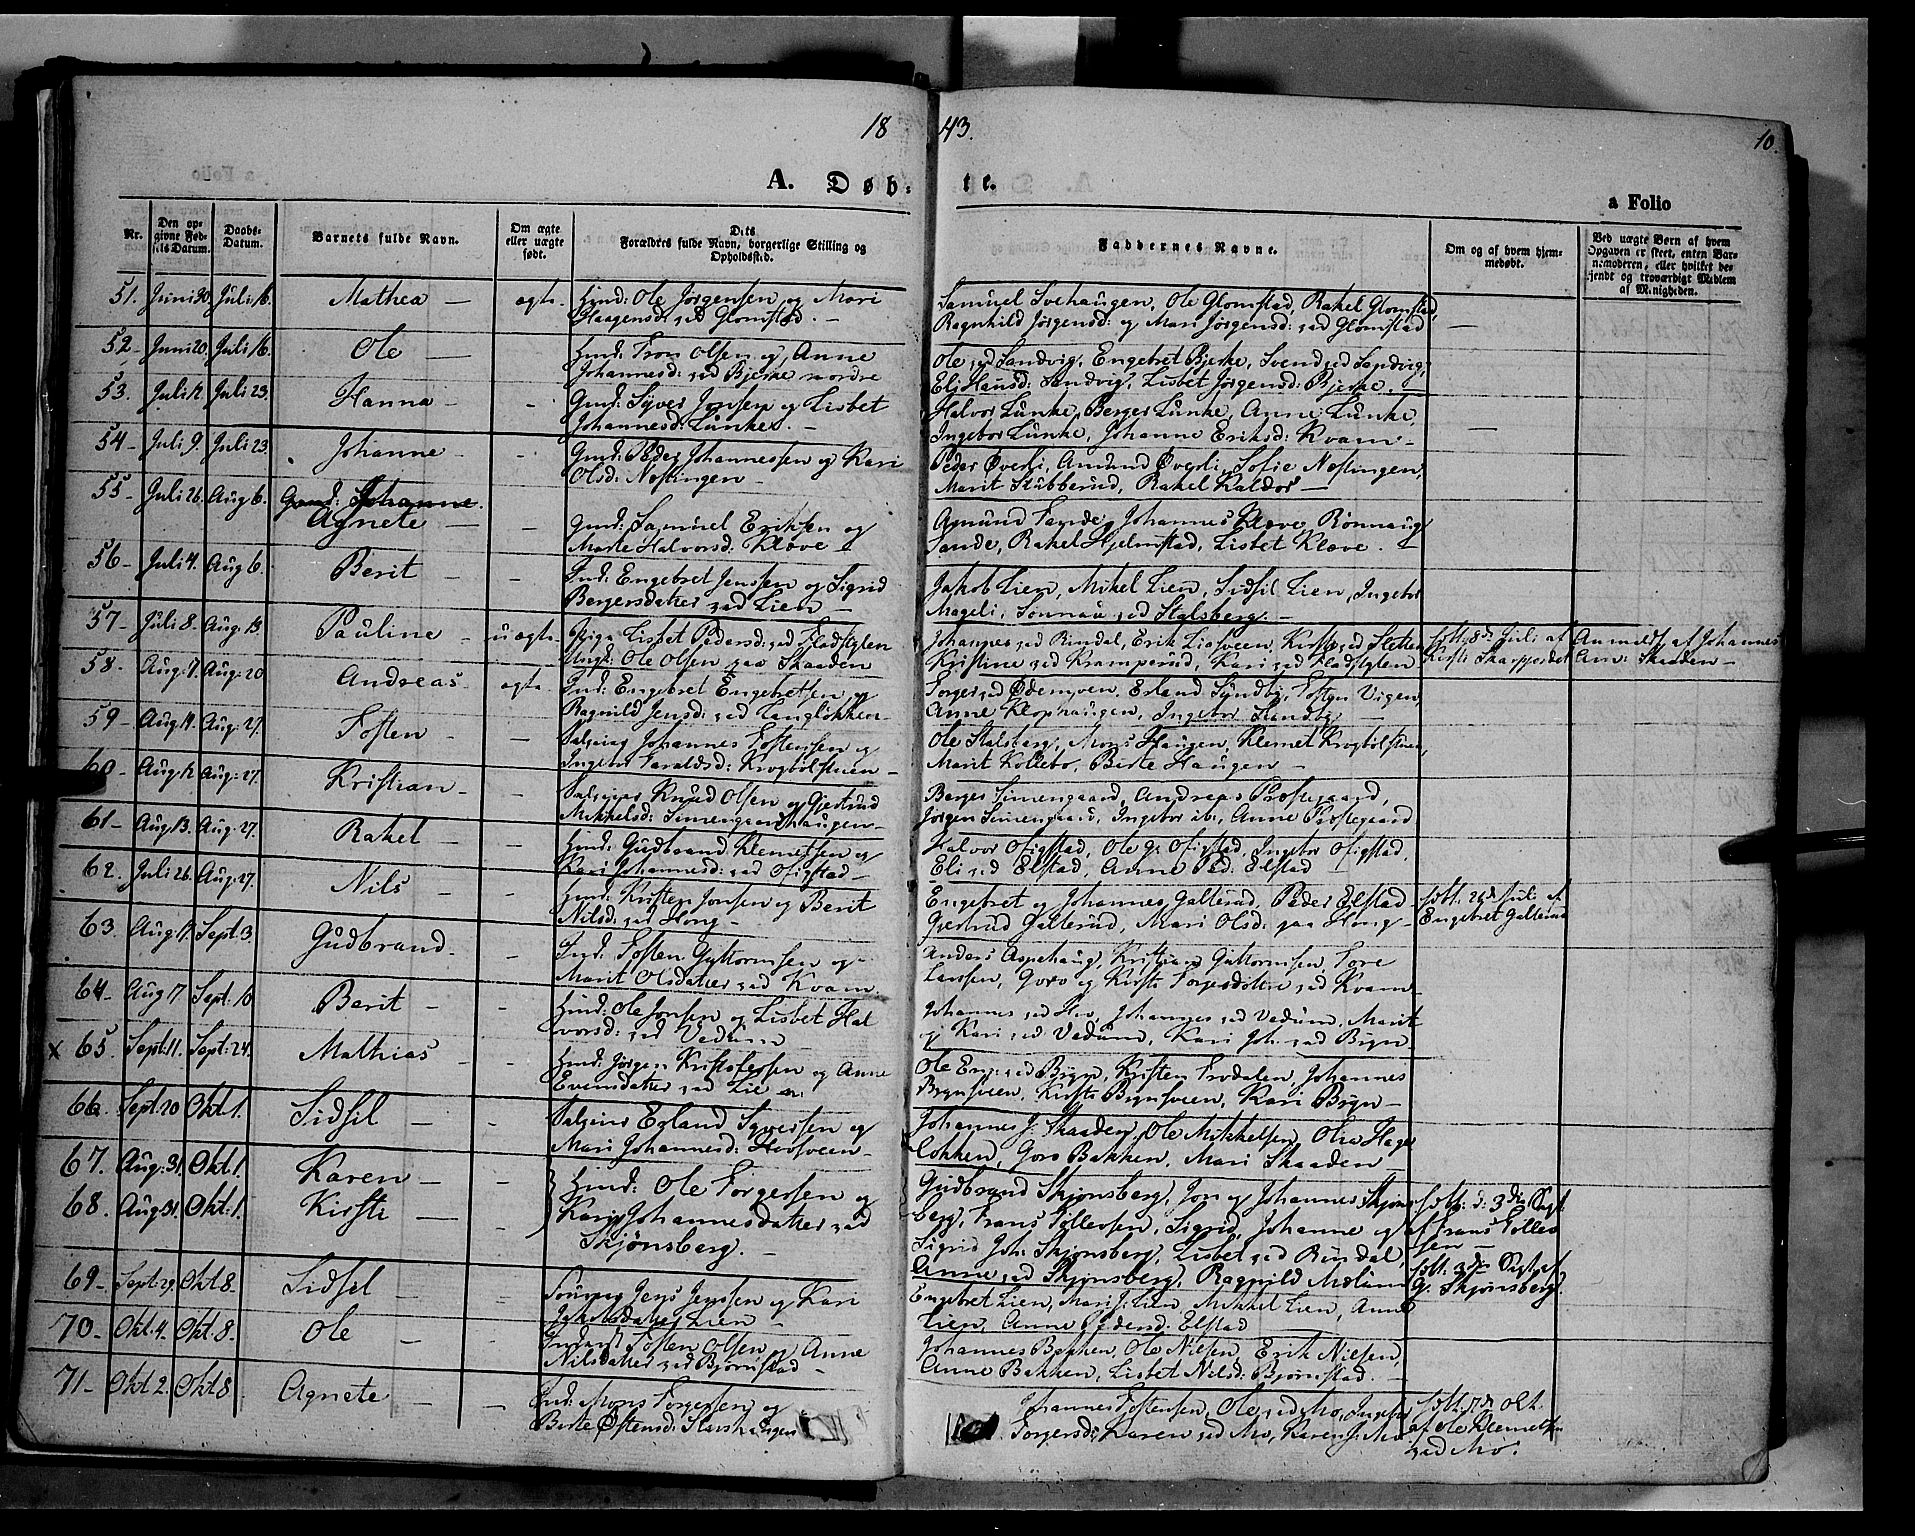 18 43.
10.
A. Døb: te.
a Folio
Nr.
Den op-
givne Fød-
sels Datum.
Daabs-
Datum.
Barnets fulde Navn.
Om ægte
eller uægte
født.
Dets
Forældres fulde Navn, borgerlige Stilling og
Opholdssted.
Faddernes Navne.
Om og af hvem hjem-
medøbt.
Ved uægte Børn af hvem
Opgaven er skeet, enten Bar-
nemoderen, eller hvilket be-
kjendt og troværdigt Medlem
af Menigheden.
51. Juni 30. Juli 16. Mathea — ægte. Gmd: Ole Jørgensen og Mari
Haagensd: Glomstad. —
Samuel Svehaugen, Ole Glomstad, Rakel Glomstad,
Ragnhild Jørgensd: og Mari Jørgensd: Glomstad —
52 — Juni 20. Juli 16. Ole — - Olsen og Anne
Johannesd: Bjerke nordre
Ole Sandvig, Engebret Bjerke, Svend Sandvig,
Eli Hansd: Sandvig, Lisbet Jørgensd: Bjerke. —
53. Juli 12 Juli 23. Hanna — - Gmd: Syver Jonsen og Lisbet
Johannesd: Lunke. —
Halvor Lunke, Berger Lunke, Anne Lunke,
Ingebor Lunke, Johanne Eriksd: Kvam — —
54 — Juli 9. Juli 23 Johanne — - Gmd: Peder Johannessen og Kari
Olsd: Neslingen —
Peder Øverli, Amund Øverli, Sofie Neslingen,
Marit Stubberud, Rakel Kaldor —
55 — Juli 26. Aug 6. Gmd: Johanne.
Agnete — - Gmd: Samuel Eriksen og
Marte Halvorsd: Kleve —
Amund Sande, Johannes Kleve, Rønnaug
Sande, Rakel Hjelmstad, Lisbet Kleve. —
56 — Juli 4. Aug 6. Berit — - Ind: Engebret Jensen og Sigrid
Bergersdatter Lien —
Jakob Lien, Mikel Lien, Sidsil Lien, Ingebor
Mageli, Stalsberg. —
57 — Juli 8. Aug: 13. Pauline — uægte. Pige Lisbet Pedersd: Fladstylen
Ungk: Ole Olsen paa Skaaden
Johannes Rindal, Erik Liosveen,
Kristine Kramperud, Kari Fladstylen
Juli af
Kirsti
Anmeldt af Johannes
Skaaden —
58. Aug: 7. Aug: 20 Andreas ægte Ind: Engebret Engebretsen og
Ragnild Jensd: Langløkken —
Erland Sundby, Tosten Vigen,
Anne Klophaugen, Ingebor Sundby —
59 — Aug: 14. Aug: 27. Tosten — - Johannes Tostensen og
Ingebor Haraldsd: Krogbølstuen —
Ole Stalsberg, Mons Haugen, Klemet Krogbølstuen,
Marit Kollebo, Birte Haugen —
60 — Aug 12 Aug: 27. Kristian — - Knud Olsen og Gjertrud
Mikkelsd: Simengaardhaugen —
Berger Simengaard, Andreas Prestegaard,
Jørgen Simengaard, Ingebor ib:, Anne Prestegaard
61 — Aug 13. Aug: 27. Rakel — - Gmd: Gudbrand Klemetsen og
Kari Johannesd: Ofigstad —
Halvor Ofigstad, Ole G: Ofigstad, Ingebor Ofigstad,
Eli Elstad, Anne Ped: Elstad —
62. Juli 26. Aug: 27. Nils — - Gmd: Kristen Jonsen og Berit
Nilsd: Hong —
Engebret og Johannes Galterud, Peder Elstad
Gjertrud Galterud, Mari Olsd: paa Hong —
Juli af
Engebret Galterud
63. Aug: 17. Sept 3. Gudbrand — - Ind: Tosten Guttormsen og
Marit Olsdatter Kvam
Anders Aspehaug, Kristian Guttormsen, Tore
Larssen, Goro og Kirsti Torgersdøtre Kvam
64 — Aug 17 Sept: 10 Berit — - Gmd: Ole Jonsen og Lisbet Hal
vorsd: Vedum —
Johannes Ho, Johannes Vedum, Marit
og Kari Vedum, Kari Joh: Bryn —
x 65. Sept: 11. Sept: 24. Mathias — - Gmd: Jørgen Kristofersen og Anne
Evensdatter Lien.
Ole Bryn, Kristen Frodalen, Johannes
Brynsveen, Kirsti Brynsveen, Kari Bryn —
66. Sept: 20 Okt: 1. Sidsil — - Erland Syversen og
Mari Johannesd: Hovsveen —
Johannes J: Skaaden, Ole Mikkelsen, Olia Hage
løkken, Goro Bakken, Mari Skaaden —
67. Aug: 31. Okt: 1. Karen — - Gmd: Ole Torgersen og
68. Aug: 31. Okt: 1. Kirsti — - Kari Johannesdatter
Skjønsberg. —
Gudbrand Skjønsberg, Jon og Johannes Skjøns
berg, Frans Tollefsen, Sigrid, Johanne og
Sigrid Joh: Skjønsberg, Lisbet Rindal,
Anne Skjønsberg, Ragnild Melum
d: 3die Sept:
af Frans Tollef
sen —
3die Sept: af
G: Skjønsberg.
69 — Sept: 29. Okt 8. Sidsel — - Jens Jenssen og Kari
Jakobsdatter Lien —
Engebret Lien, Mari J: Lien, Mikkel Lien, Anne
Lien, Anne Pedersd: Elstad
70 — Okt: 4. Okt: 8. Ole — - Tosten Olsen og Anne
Nilsdatter Bjørnstad —
Johannes Bakken, Ole Nilsen, Erik Nilsen,
Anne Bakken, Lisbet Nilsd: Bjørnstad. —
71 — Okt 2. Okt 8 Agnete — - Ind: Mons Torgersen og
Birte Østensd:
Johannes Tostensen, Ole Mo, Ingebor
Torgersd:, Karen Mo, Karen J: Mo
7de Okt.
af Ole Klemetsen
Mo.